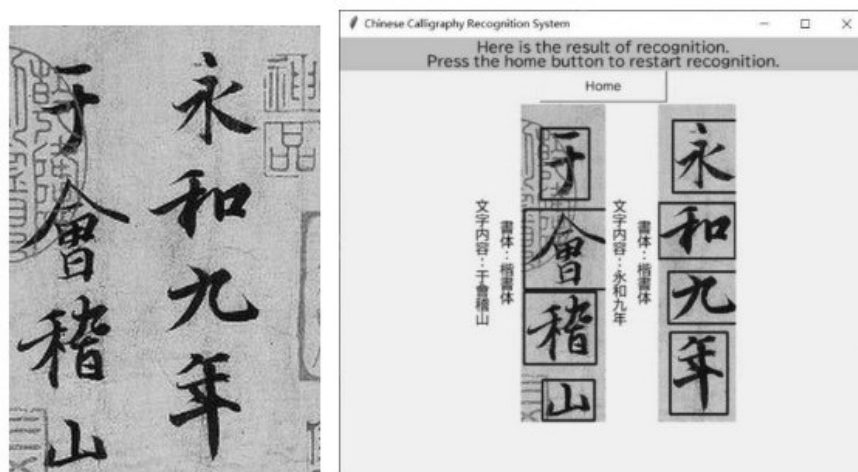 神品
永和九年
于會稽山
Chinese Calligraphy Recognition System
Here is the result of recognition.
Press the home button to restart recognition.
Home
永和九年
書体：楷書体
文字内容：永和九年
于會稽山
書体：楷書体
文字内容：于會稽山